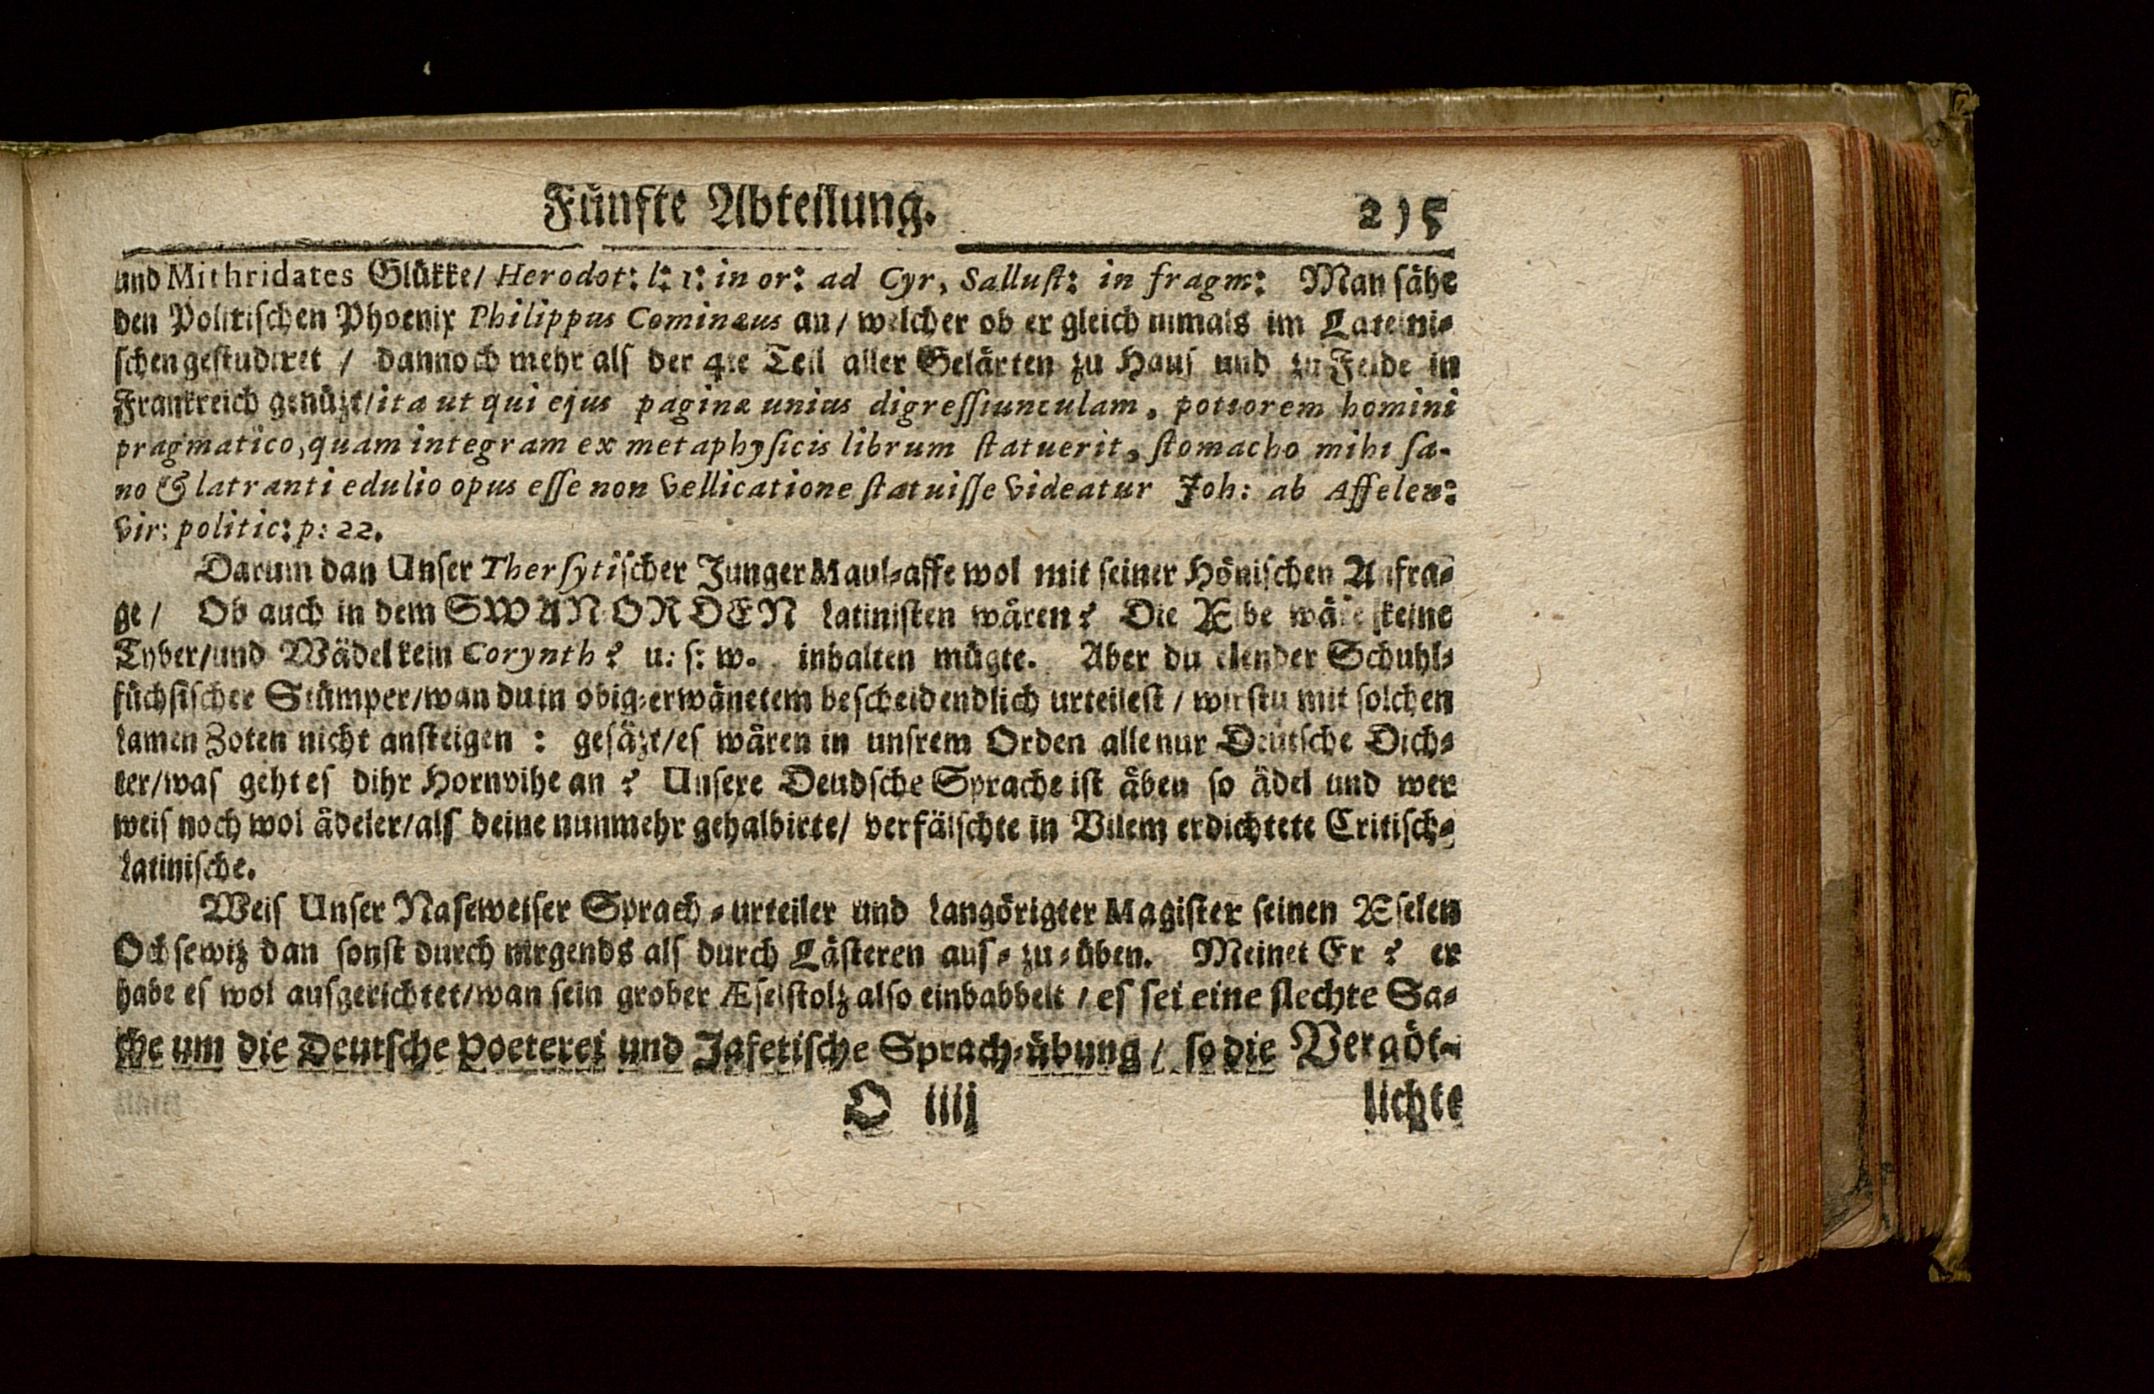 Fünfte Abteilung. 215
und Mithridates Glükke/ Herodot: l: 1: in or: ad Cyr, Sallust: in fragm: Man sähe
den Politischen Phoenix Philippus Cominæus an/ welcher ob er gleich nimals im Lateini-
schen gestudiret / dannoch mehr als der 4te Teil aller Gelärten zu Haus und zu Felde in
Frankreich genüzt/ita ut qui ejus paginæ unius digressiunculam, potiorem homini
pragmatico, quam integram ex metaphysicis librum statuerit, stomacho mihi sa-
no & latranti edulio opus esse non vellicatione statuisse videatur Joh: ab Affelen:
vir: politic: p: 22.
Darum dan Unser Thersytischer Junger Maul-affe wol mit seiner Hönischen Anfra-
ge / Ob auch in dem SWAN-ORDEN Latinisten wären? Die Ælbe wäre keine
Tyber/und Wädel kein Corynth? u: s: w. inhalten mügte. Aber du elender Schuhl-
füchsischer Stümper/wan du in obig-erwänetem bescheidendlich urteilest / wirstu mit solchen
lamen Zoten nicht ansteigen : gesäzt/es wären in unsrem Orden alle nur Deutsche Dich-
ter/was geht es dihr Hornvihe an? Unsere Deudsche Sprache ist äben so ädel und wer
weis noch wol ädeler/als deine nunmehr gehalbirte/ verfälschte in Vilem erdichtete Critisch-
Latinische.
Weis Unser Naseweiser Sprach-urteiler und Langörigter Magister seinen Æselen
Ochsewiz dan sonst durch nirgends als durch Lästeren aus-zu-üben. Meinet Er? er
habe es wol ausgerichtet/wan sein grober Æselstolz also einbabbelt / es sei eine slechte Sa-
che um die Deutsche Poeterei und Jafetische Sprach-übung / so die Vergöt-
O iiij lichte